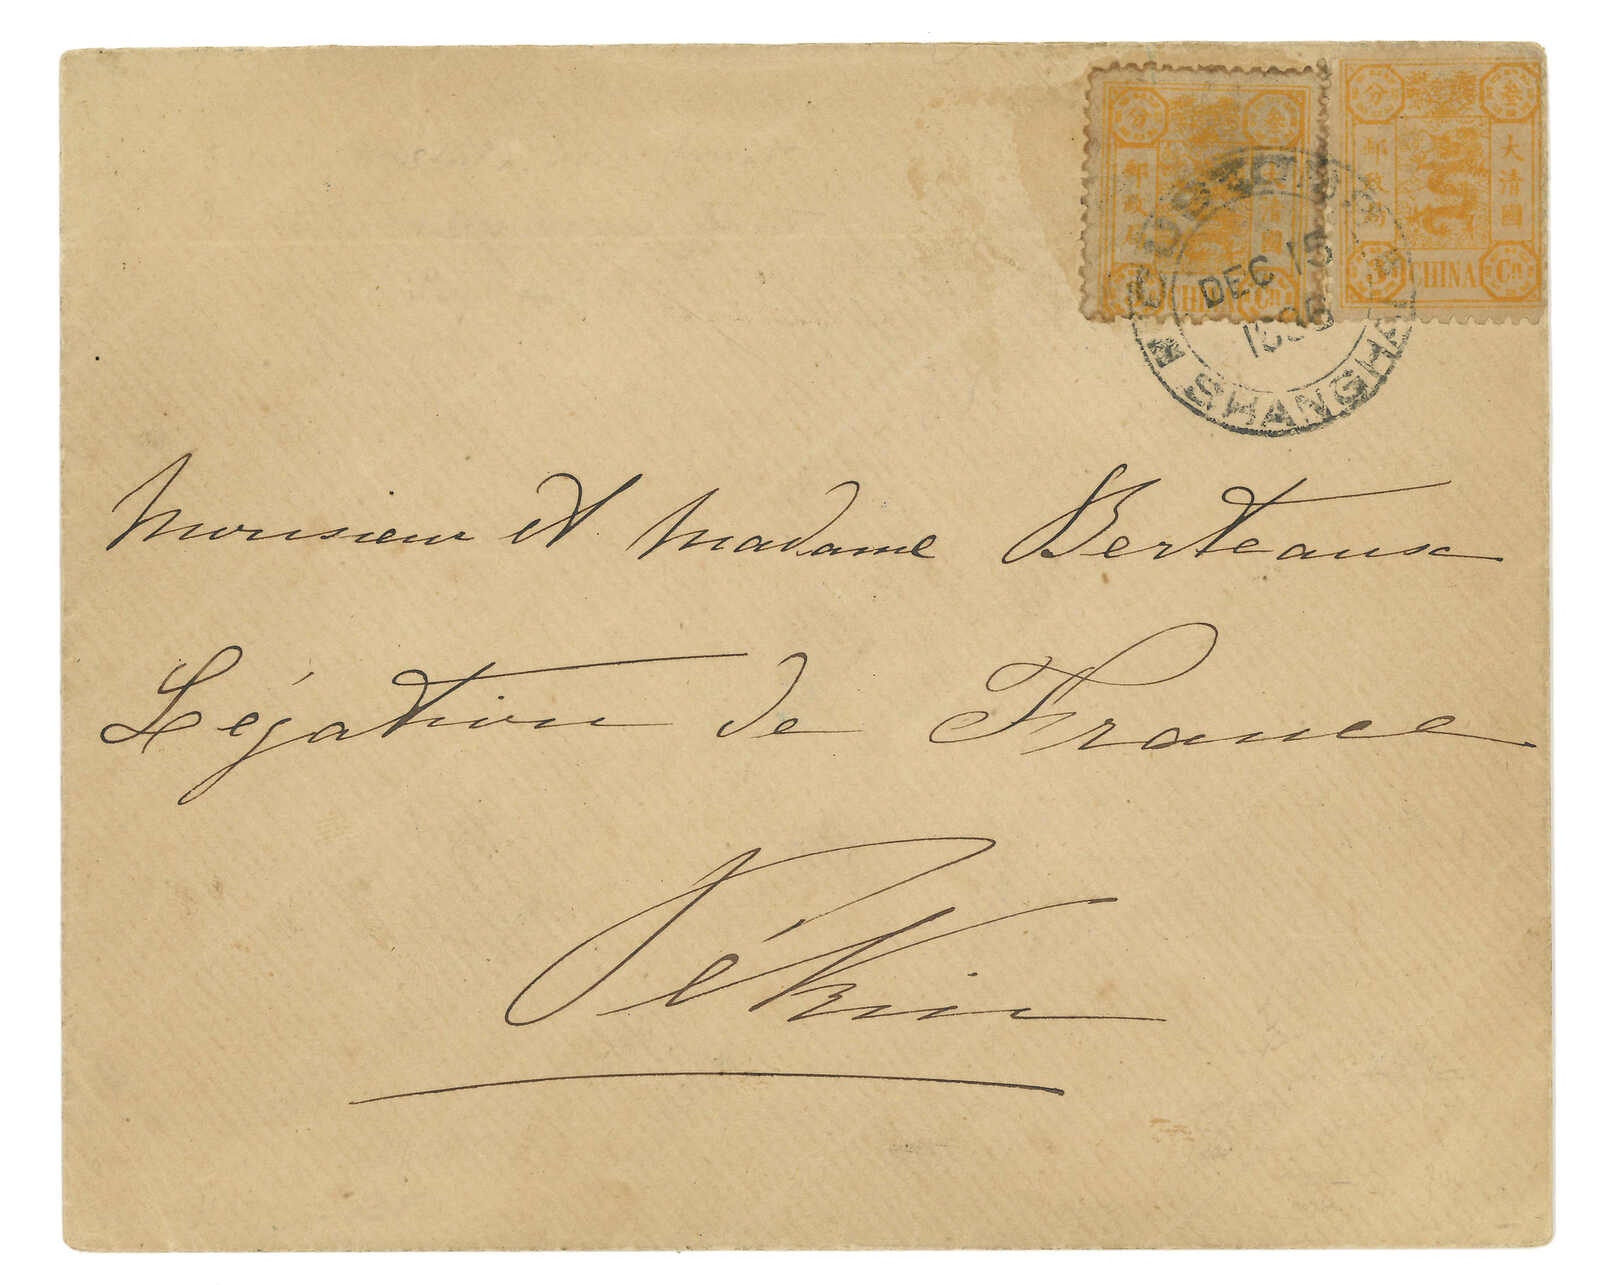 大清國
郵政局
分 叁
3 CHINA Cn
分 叁
清國
郵政局
Cn
CUSTOMS
DEC 15
SHANGHAI
Monsieur et Madame Berteaux
Légation de France
Pékin